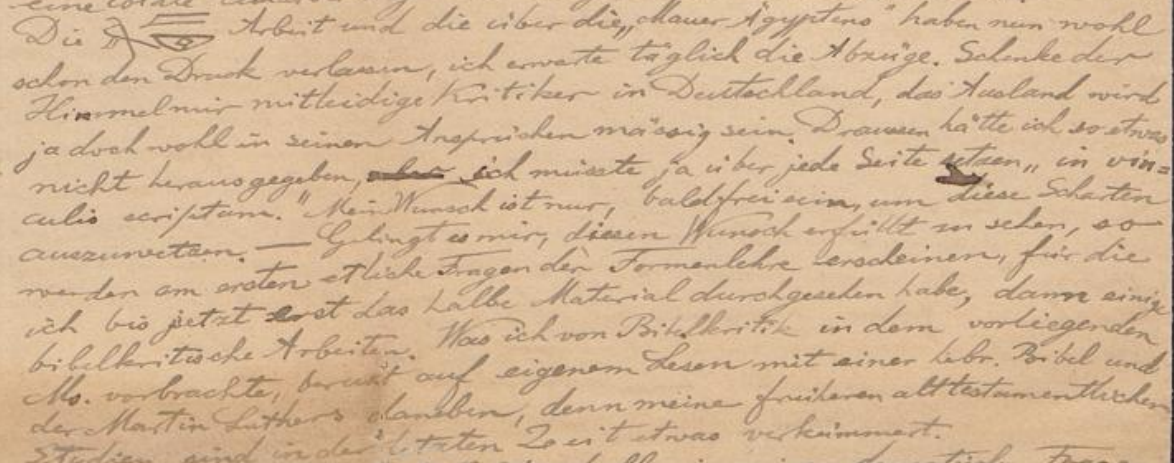 Die „ Arbeit und die über die „Mauer Ägyptens" haben nun wohl
schon den Druck verlassen, ich erwarte täglich die Abzüge. Schenke der
Himmel mir mitleidige Kritiker in Deutschland, das Ausland wird
ja doch wohl in seinen Ansprüchen mässig sein. Draussen hätte ich so etwas
nicht herausgegeben, ich müsste ja über jede Seite setzen „in vin=
culis scriptum." Mein Wunsch ist nur, bald frei sein, um diese Scharten
auszuwetzen. — Gelingt es mir, diesen Wunsch erfüllt zu sehen, so
werden am ersten etliche Fragen der Formenlehre erscheinen, für die
ich bis jetzt erst das halbe Material durchgesehen habe, dann einige
bibelkritische Arbeiten. Was ich von Bibelkritik in dem vorliegenden
Ms. vorbrachte, beruht auf eigenem Lesen mit einer hebr. Bibel und
der Martin Luthers daneben, denn meine früheren alttestamentlichen
Studien sind in der letzten Zeit etwas verkümmert.